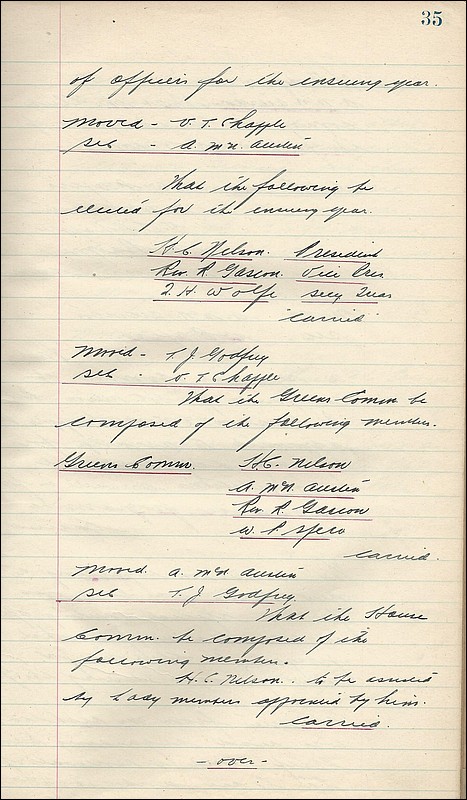 35
of officers for the ensuing year.
Moved - V. T. Chapple
Sec - A. McN. Austin
That the following be
elected for the ensuing year.
H. C. Nelson. President
Rev. R. Gascon. Vice Pres
J. H. Wolfe Secy Treas
carried
Moved - T. J. Godfrey
Sec - V. T. Chapple
That the Greens Comm be
composed of the following members.
Greens Comm. H.C. Nelson
A. McN Austin
Rev. R. Gascon
W. P.
carried.
Moved. A. McN Austin
Sec T. J. Godfrey
That the House
Comm. be composed of the
following members.
H. C. Nelson. to be assisted
by lady members appointed by him.
carried.
- over -